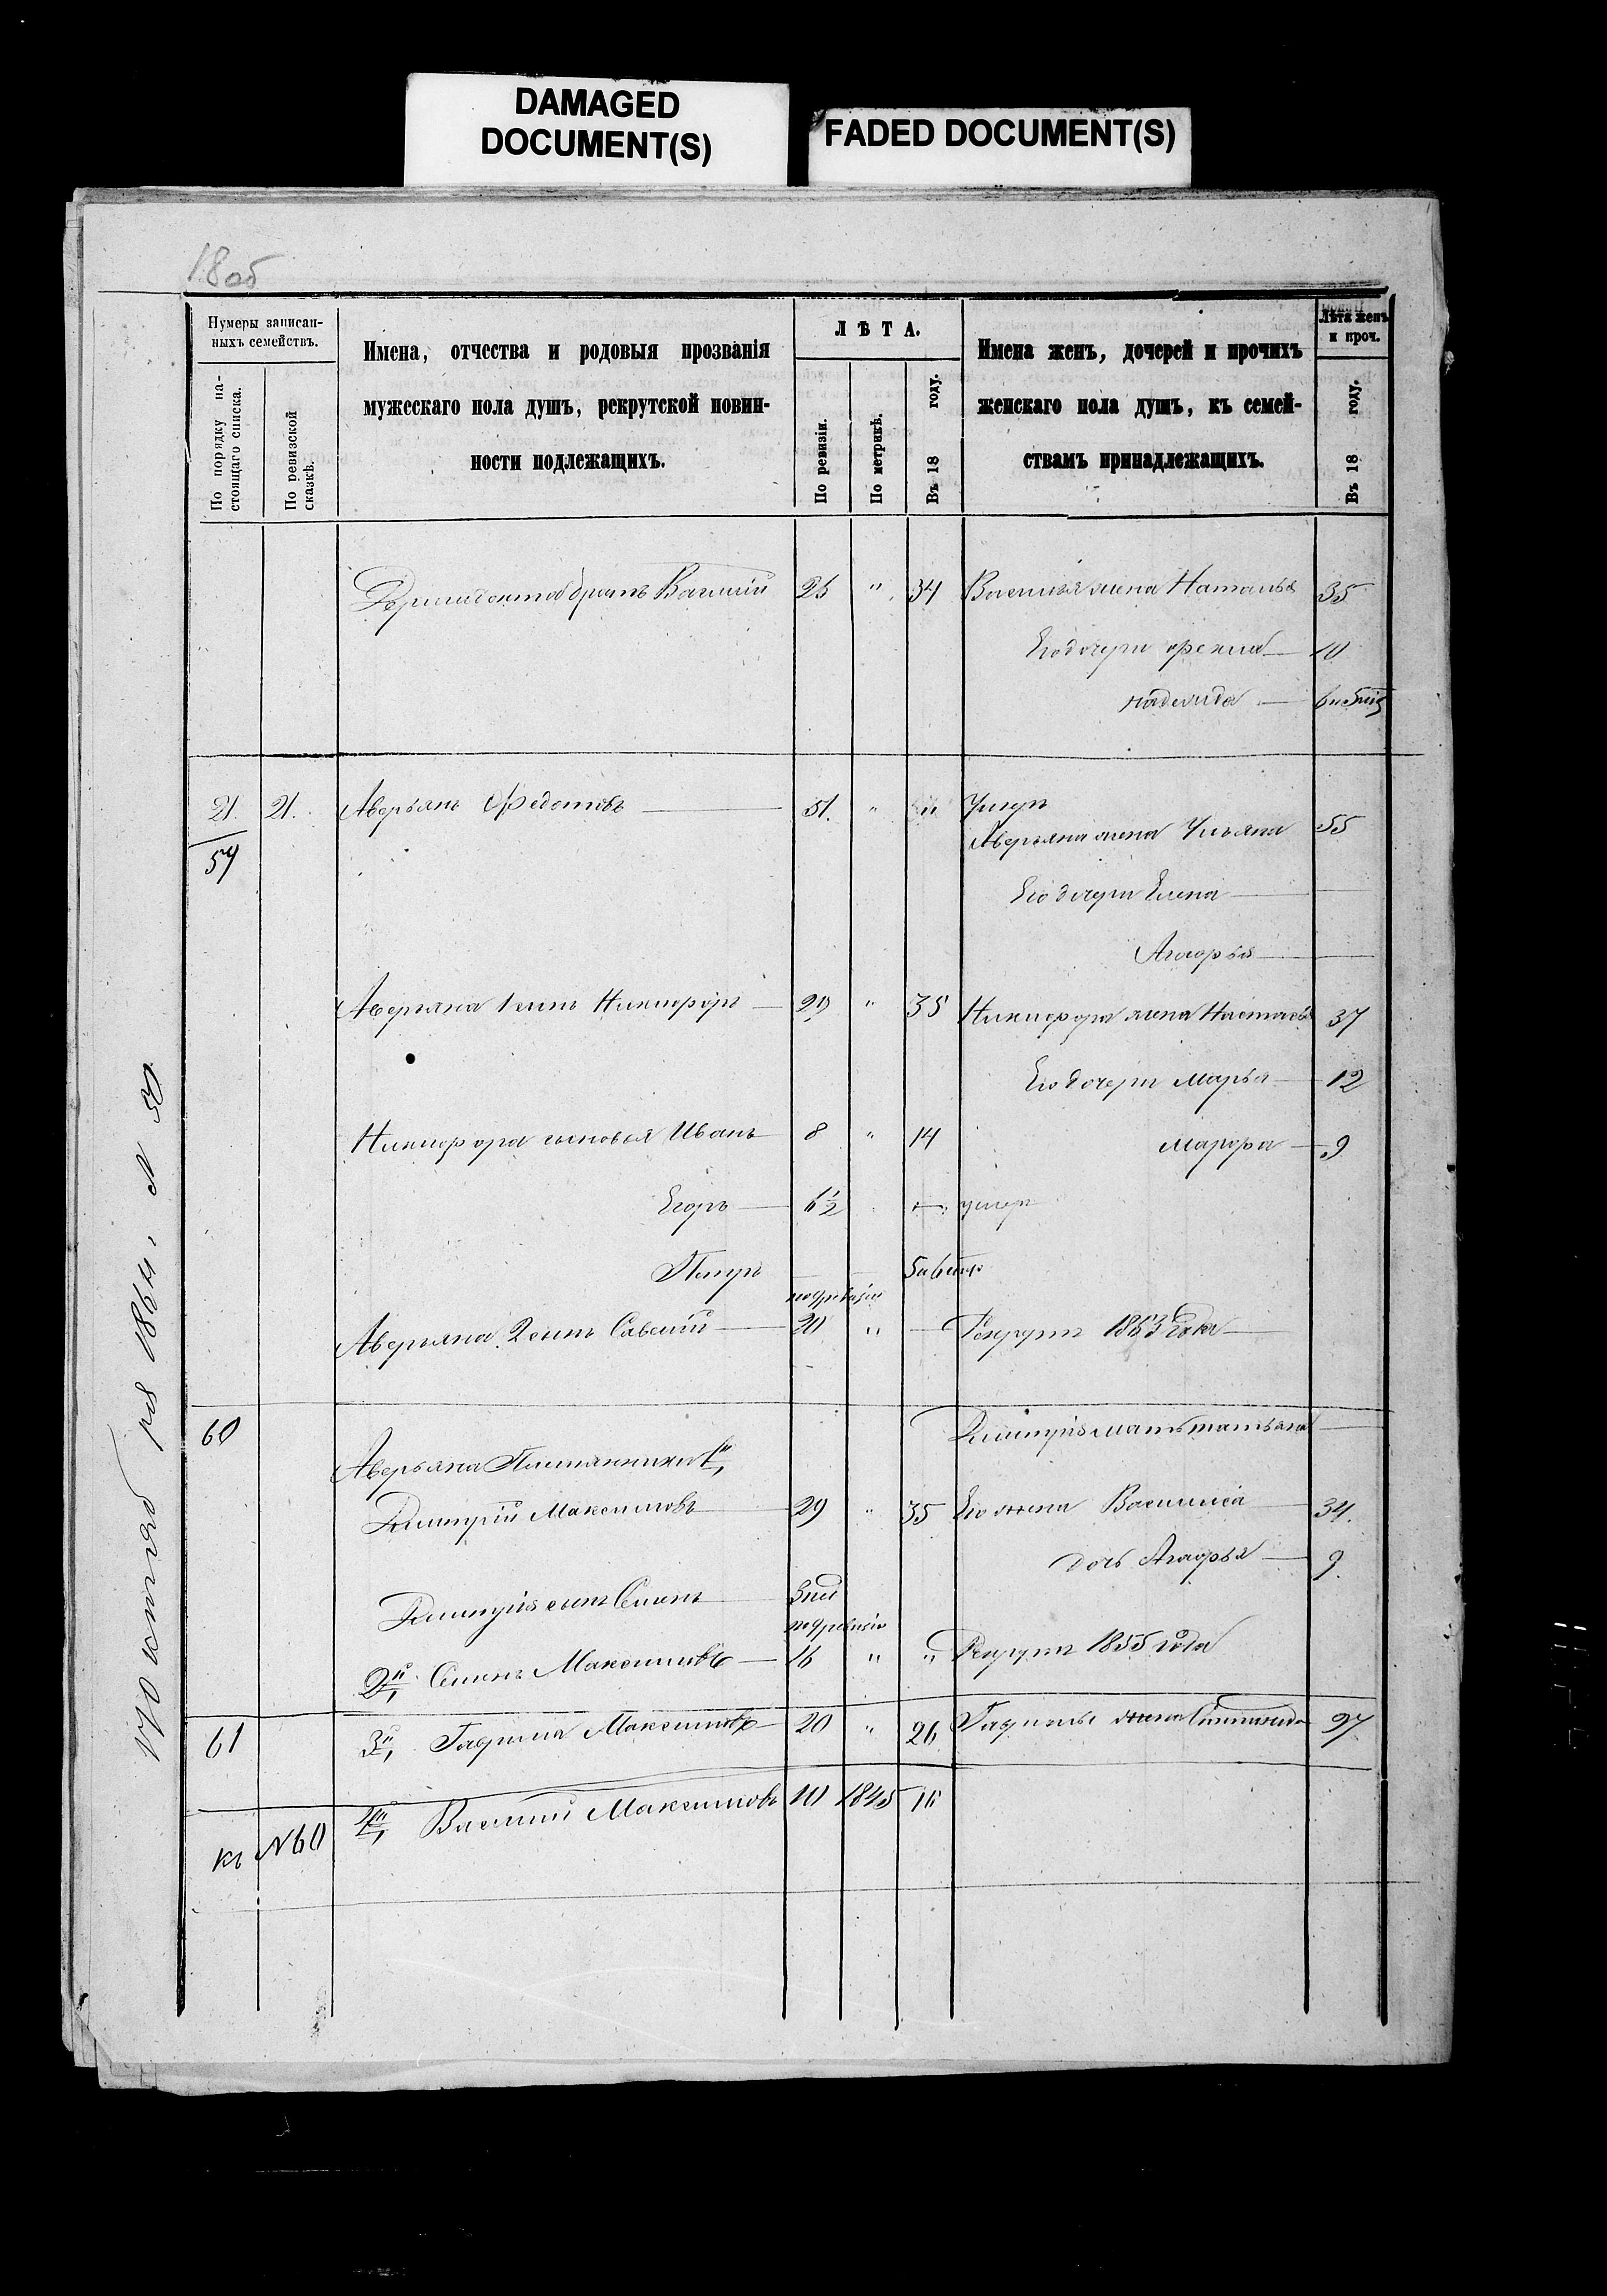 DAMAGED
DOCUMENT(S)
FADED DOCUMENT(S)
18об
Нумеры записан-
ныхъ семействъ.
По порядку на-
стоящаго списка.
По ревизской
сказкѣ.
Имена, отчества и родовыя прозванія
мужескаго пола душъ, рекрутской повин-
ности подлежащихъ.
ЛѢТА.
По ревизіи.
По метрикѣ.
Въ 18 году.
Имена женъ, дочерей и прочихъ
женскаго пола душъ, къ семей-
ствамъ принадлежащихъ.
Лѣта женъ
и проч.
Въ 18 году.
братъ Василій 25 " 34 Василья жена Наталья 35
Его дочери 10
надежда
21. 21. Аверьянъ Федотовъ 51. " " Умеръ
59
Аверьяна жена Ульяна 55
Его дочери Елена
Агафья
Аверьяна 1 сынъ Никифоръ 29 " 35 Никифора жена Настасья 37
Его дочери Марья 12
Никифора сыновья Иванъ 8 " 14 Марфа 9
Егоръ 6½ умеръ
Петръ
Аверьяна 2 сынъ Савелій 20 " Рекрутъ 1853 года
60
Дмитрія мать татьяна
Аверьяна Племянники 1й,
Дмитрій Максимовъ 29 " 35 Его жена Василиса 34.
дочь Агафья 9.
Дмитрія сынъ Семенъ
2й, Семенъ Максимовъ 16 " " Рекрутъ 1855 года
61 3й, Гаврила Максимовъ 20 " 26 Гаврилы жена 27
къ №60 4й, Василий Максимовъ 10 1845 16
октября 1864. № 50